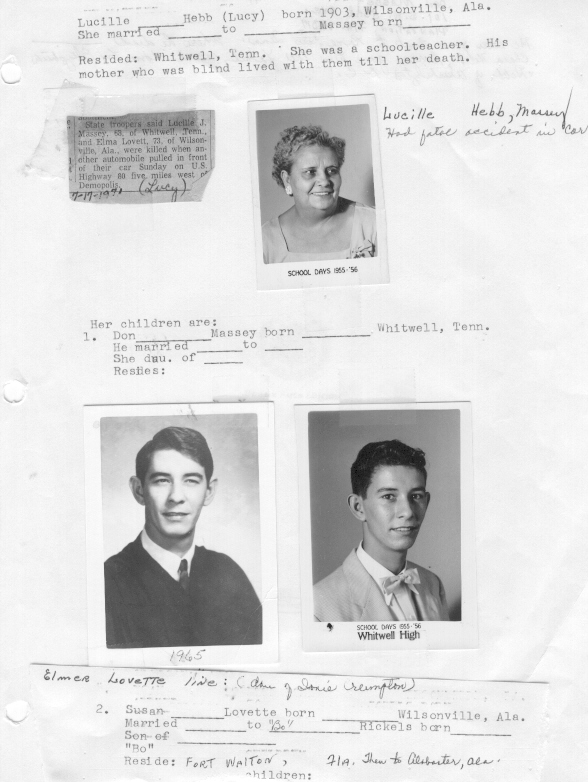 Lucille ______Hebb (Lucy) born 1903, Wilsonville, Ala.
She married ______to ______Massey born ______
Resided: Whitwell, Tenn. She was a schoolteacher. His
mother who was blind lived with them till her death.
State troopers said Lucille J.
Massey, 63, of Whitwell, Tenn.,
and Elma Lovett, 73, of Wilson-
ville, Ala., were killed when an-
other automobile pulled in front
of their car Sunday on U.S.
Highway 80 five miles west of
Demopolis.
(Lucy)
Lucille Hebb, Massey
Had fatal accident in car
SCHOOL DAYS 1955-'56
Her children are:
1. Don______Massey born ______ Whitwell, Tenn.
He married _____to _____
She dau. of _____
Resides:
1965
SCHOOL DAYS 1955-'56
Whitwell High
Elmer Lovette line: (
2. Susan ______Lovette born ______Wilsonville, Ala.
Married ______to "Bo" ______Rickels born______
Son of ______
"Bo"
Reside: FORT WALTON, Fla. Then to Alabaster, Ala.
children: